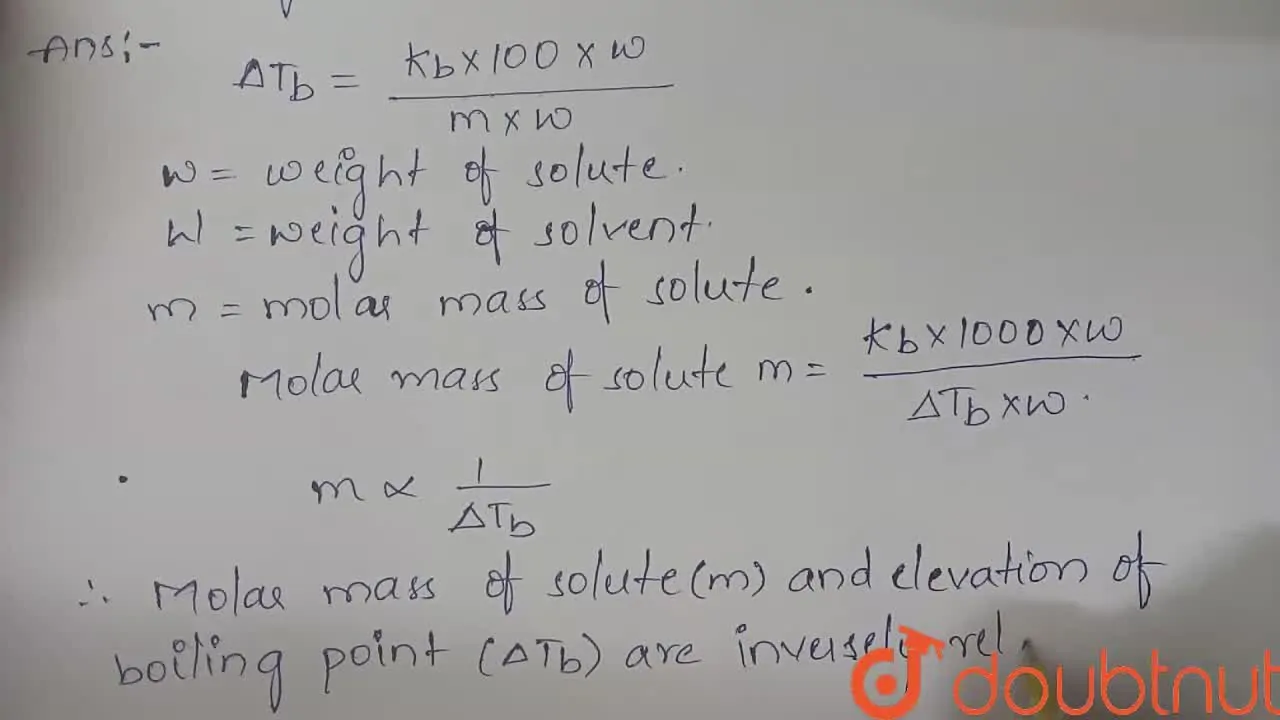 Ans:-
ΔTb = Kb × 100 × w / m × w
w = weight of solute.
W = weight of solvent.
m = molar mass of solute.
Molar mass of solute m = Kb × 1000 × w / ΔTb × w.
m ∝ 1 / ΔTb
∴ Molar mass of solute (m) and elevation of
boiling point (ΔTb) are inversely rel
doubtnut